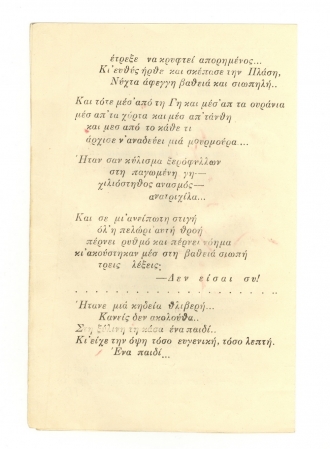 ἔτρεξε νὰ κρυφτεῖ ἀπορημένος...
Κι' εὐθὺς ἦρθε καὶ σκέπασε τὴν Πλάση,
Νύχτα ἄφεγγη βαθειὰ καὶ σιωπηλή..
Καὶ τότε μέσ' ἀπό τη Γη καὶ μέσ' απ' τα ουράνια
μὲσ απ' τα χόρτα καὶ μὲσ ἀπ' τάνθη
καὶ μεσ απὸ το κάθε τι
ἄρχισε ν' αναδεύει μιὰ μουρμούρα...
Ἤταν σαν κύλισμα ξερόφυλλων
στη παγωμένη γη—
χιλιόστηθος ανασμός—
ανατριχίλα...
Καὶ σε μι' ανείπωτη στιγή
ὁλ' ἡ πελώρι' αυτὴ θροή
πέρνει ρυθμό καὶ πέρνει νόημα
κι' ακούστηκαν μέσ στη βαθειά σιωπή
τρεις λέξεις:
—Δεν εἰσαι συ!
. . . . . . . . . . . . . . . . . . . . .
Ἤτανε μιὰ κηδεία θλιβερή...
Κανεὶς δεν ακολούθα..
Στη ξύλινη τη κάσα ἕνα παιδί..
Κι' εἶχε την ὄψη τόσο ευγενική, τόσο λεπτή.
Ἕνα παιδί...